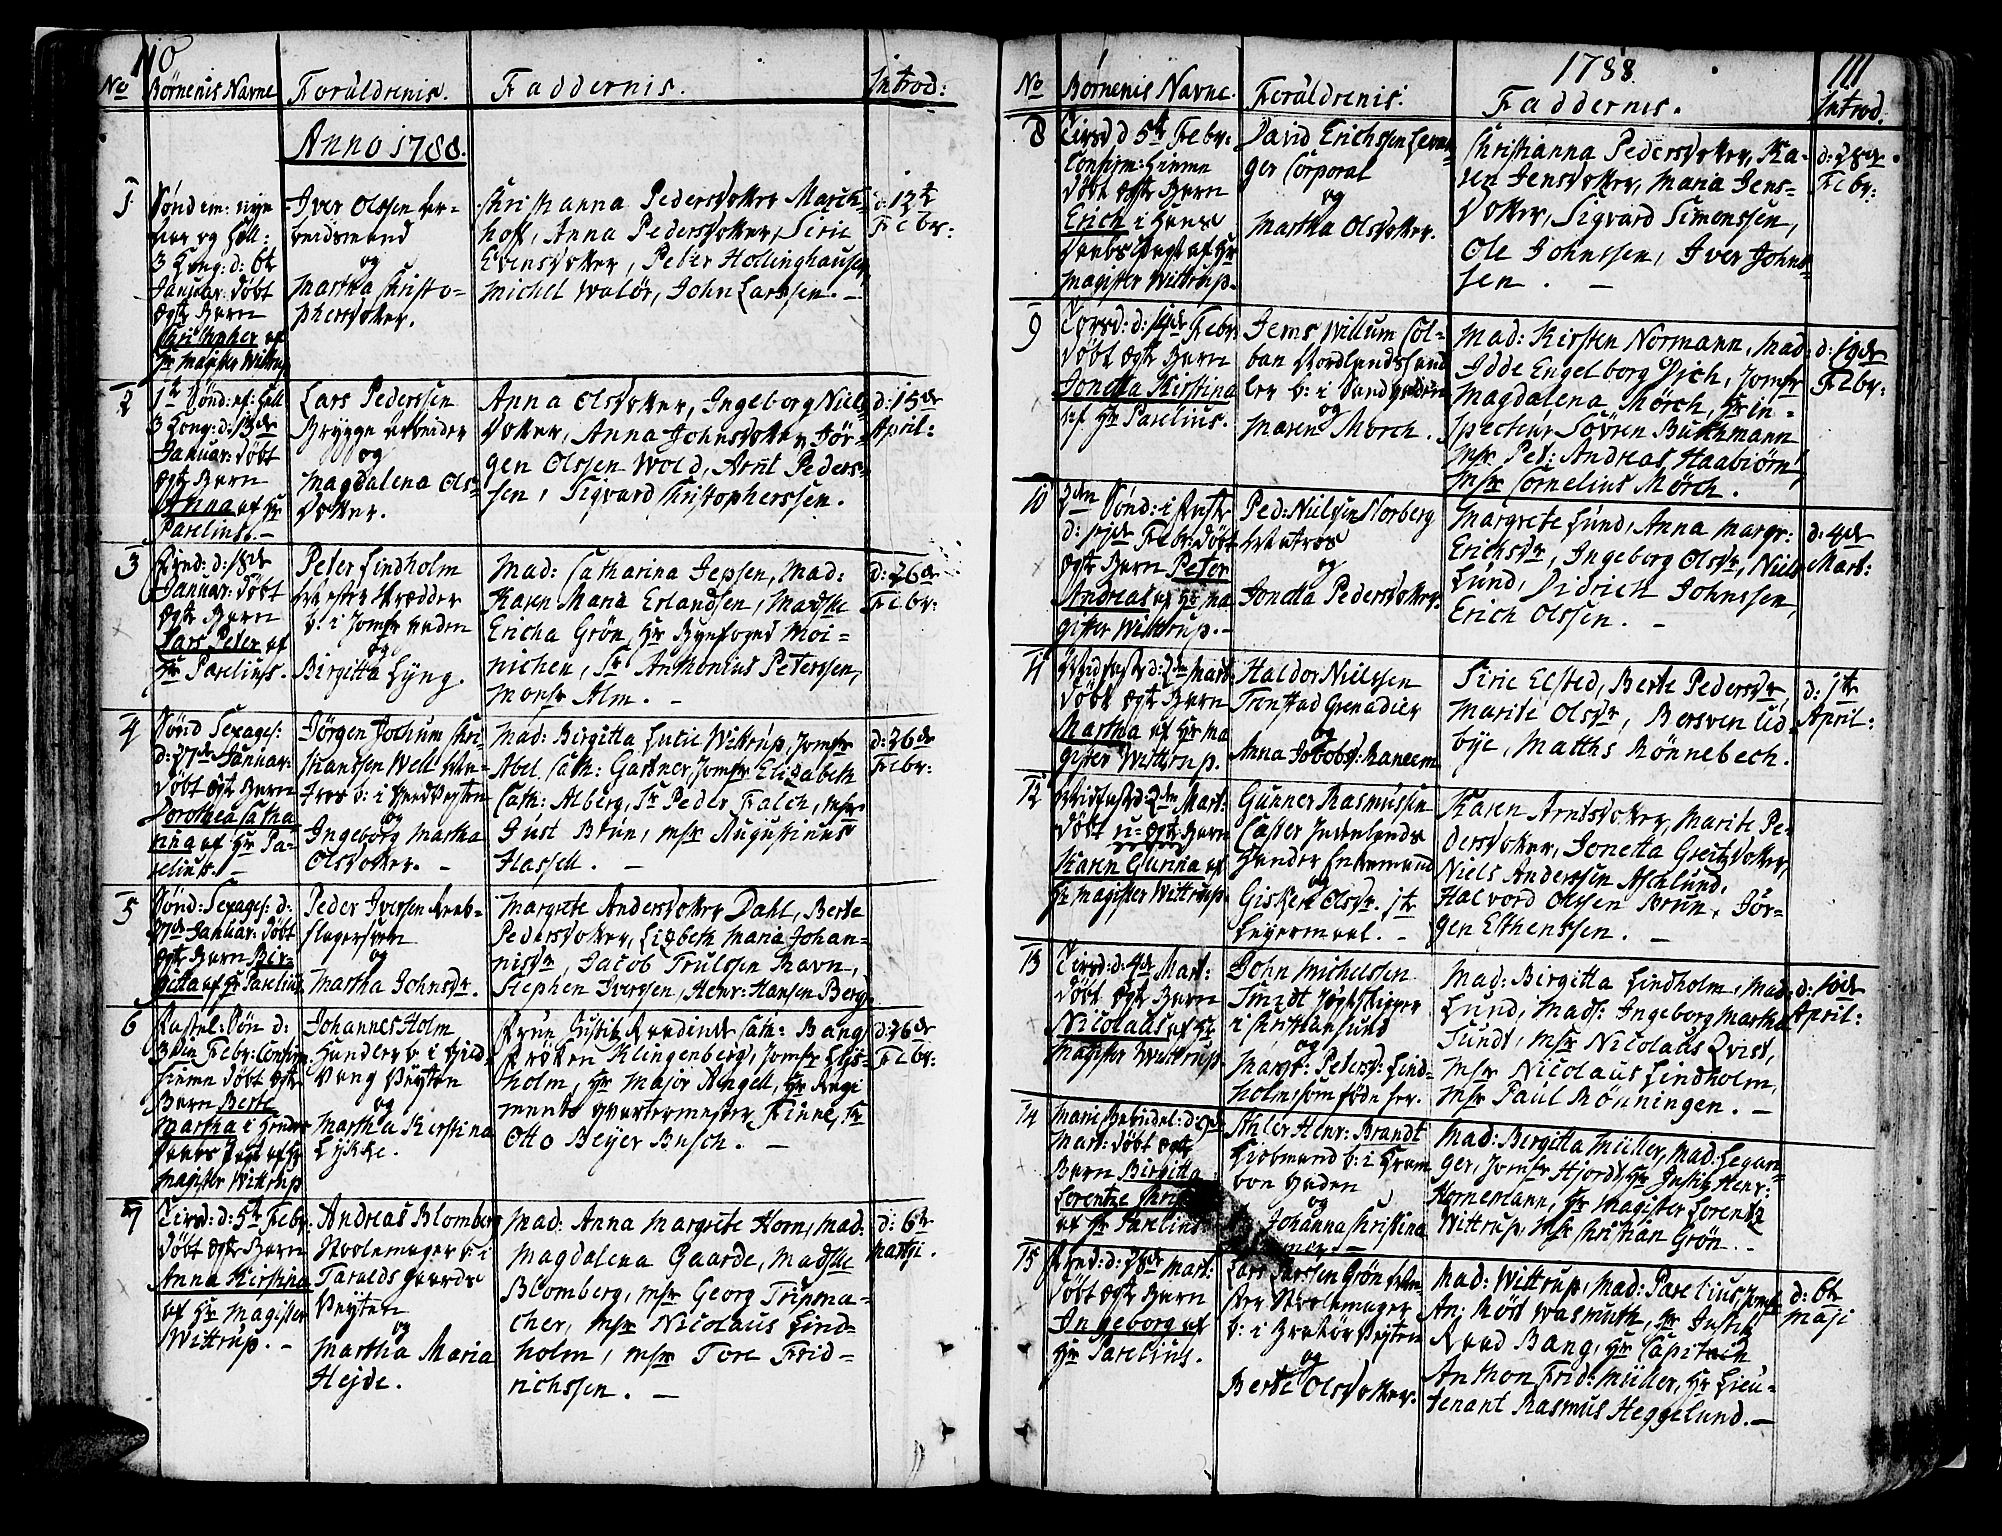 110
No Børnenis Navne Forældrenis. Faddernis. Introd:
Anno 1788.
1
Sønd em: nyn
aar og Hell:
3 Kong: d: 6t
Januar: døbt
Ægte Barn
Christopher af
Hr Magister Wittrup
Iver Olssen Ar-
beidsmand
og
Martha Christo-
phersdotter.
Christianna Pedersdotter March-
hoff, Anna Pedersdotter, Sirie
Evensdotter, Peter Hollinghausen,
Michel Walör, John Larssen. –
d: 12t
Febr:
2
1te Sønd: ef: Hell
3 Kong: d: 13de
Januar: døbt
Ægte Barn
Anna af Hr
Parelius. –
Lars Pederssen
Brygge Arbeider
og
Magdalena Ols-
dotter.
Anna Olsdotter, Ingeborg Niels-
dotter, Anna Johnsdotter, Jör-
gen Olssen Wold, Arnt Peders-
sen, Sigvard Christopherssen.
d: 15de
April:
3
Fred: d: 18de
Januar: døbt
Ægte Barn
Lars Peter af
Hr Parelius.
Peter Lindholm
Mester Skrædder
b: i Jomfr
og
Birgitta Lyng.
Mad: Catharina Jepsen, Mad:
Karen Maria Erlandsen, Madslle
Ericha Grön, Hr Byefoged Moi-
nichen, Sr Anthonius Peterssen,
Monsr Alm. –
d: 26de
Febr:
4
Sønd Sexages:
d: 27de Januar:
døbt Ægte Barn
Dorothea Catha
rina af Hr Pa-
relius. –
Jörgen Jochum Chri-
stianssen Well Ma-
tros b: i
og
Ingeborg Martha
Olsdotter. –
Mad: Birgitta Lucie Wittrup, Jomfr
Abel Cath: Gartner Jomfr Elisabeth
Cath: Alberg, Sr Peder Falch, Msr
Just Brun, Msr Augustinus
Hassell. –
d: 26de
Febr:
5
Sønd: Sexages: d:
27de Januar: døbt
Ægte Barn Bir-
gitta af Hr Parelius
Peder Iversen Reeb-
slagersvend
og
Martha Johnsdr.
Margrete Andersdotter Dahl, Berte
Pedersdotter, Lisbeth Maria Johan-
nisdr, Jacob Trulssen Ravn,
Stephen Iverssen, Henr: Hansen Berg.
6
Fastel: Søn d:
3die Febr: Confirm
hiemme døbt Ægte
Barn Berte
Martha i Henders
Daabs Pagt af Hr
Magister Wittrup
Johannes Holm
Handler b: i
Vang Veyten
og
Martha Kirstina
Lykke.
Frue Justits Raadinde Cath: Bang
Frøken Klingenberg, Jomfr Elis-
holm, Hr Major Angell, Hr Regi
ments Qvartermester Finne, Sr
Otto Beyer Busch. –
d: 26de
Febr:
7
Tirsd: d: 5t Febr:
døbt Ægte Barn
Anna Kirstina
af Hr Magister
Wittrup. –
Andreas Blomberg
Stolemager b: i
Taralds Gaards
Veyten
og
Martha Maria
Hejde.
Mad: Anna Margrete Horn, Mad:
Magdalena Gaarde, Madslle
Blomberg, Msr Georg Tripma-
cher, Msr Nicolaus Lind-
holm, Msr Tore Frid-
richssen. –
d: 6te
Martji.
1788. 111
No Børnenis Navne. Forældrenis. Faddernis. Introd.
8
Tirsd d 5te Febr:
Confirm: hiemme
døbt Ægte Barn
Erich i Hans
Daabs Pagt af Hr
Magister Wittrup.
David Erichssen Levan-
ger Corporal
og
Martha Olsdotter.
Christianna Pedersdotter, Ka-
ren Jensdotter, Maria Jens-
dotter, Sigvard Simonssen,
Ole Johnssen, Iver Johns-
sen. –
d: 28de
Febr:
9
Torsd: d: 14de Febr
døbt Ægte Barn
Jonetta Kirstina
af Hr Parelius.
Jems Willum Col-
ban Nordlandshand
ler b: i Sandgaden
og
Maren Morch.
Mad: Kirsten Normann, Mad:
Idde Engelborg Isch, Jomfr
Magdalena Mörch, Hr in-
specteur Sövren Buchmann
Msr Ped: Andreas Haabiörn,
Msr Cornelius Mörch.
d: 19de
Febr:
10
2den Sønd: i Faste
d: 17de Febr: døbt
Ægte Barn Peter
Andreas af Hr Ma
gister Wittrup. –
Ped: Nielsen Norberg
Matros
og
Jonetta Pedersdotter.
Margrete Lund, Anna Margr:
Erichsdr, Ingeborg Olsdr, Niels
Lund, Didrich Johnssen,
Erich Olssen. –
d: 4de
Mart:
11
Midfaste d: 2den Mart:
døbt Ægte Barn
Martha af Hr Ma
gister Wittrup.
Haldor Nielssen
Tronstad Grenadier
og
Anna Jacobsd: Raneem
Sirie Elsted, Berte Pedersdr,
Marite Olsdr, Bersven Lid-
bye, Matths Rönnebech.
d: 1te
April:
12
Midfaste d: 2den Mart:
døbt u-ægte Barn
Karen Gurina af
Hr Magister Wittrup.
Gunner Rasmussen
Caster Indenlands
Handler Enkemand
og
Gisken Olsdr. 1te
Leyermaal. –
Karen Arntsdotter, Marite Pe-
dersdotter, Jonetta Gretzdotter,
Niels Anderssen Aschlund,
Halvord Olssen Brun, Jör-
gen Esthenssen. –
13
Tirsd: d: 4de Mart:
døbt Ægte Barn
Nicolaus af Hr
Magister Wittrup.
John Michelssen
Smidt Jægtskipper
i Christiansund
og
Margt: Petersd: Lind-
holm som føde her.
Mad: Birgitta Lindholm, Mad:
Lund, Mads: Ingeborg Martha
Sundt, Msr Nicolaus Qvist,
Msr Nicolaus Lindholm,
Msr Paul Rönningen. –
d: 10de
April:
14
Marie Bebudel: d: 9de
Mart: døbt Ægte
Barn Birgitta
Lorentze
af Hr Parelius
Ahler Henr: Brandt
Kiøbmand b: i Kram
boe Gaden
og
Johanna Christina
Mad: Birgitta Müller, Mad: Legan-
ger, Jomfr Hjort, Hr Justits Henr:
Hornemann, Hr Magister Lorentz
Wittrup, Msr Christian Grön. –
15
Fred: d: 28de Mart:
døbt Ægte Barn
Ingeborg af
Hr Parelius.
Lars Larssen Grön Me-
ster Stolemager
b: i Bratør Veyten
og
Berte Olsdotter.
Mad: Wittrup, Mad: Parelius, Jomfr
An: Röst Wasmuth, Hr Justits
Raad Bang, Hr Capitain
Anthon Frid: Müller, Hr Lieu-
tenant Rasmus Heggelund. –
d: 6te
Maji